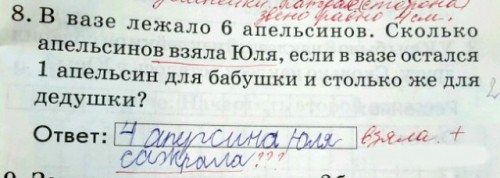 звено равно 4 см.
8. В вазе лежало 6 апельсинов. Сколько
апельсинов взяла Юля, если в вазе остался
1 апельсин для бабушки и столько же для
дедушки?
Ответ: 4 апурсина юля взяла +
сажрала???